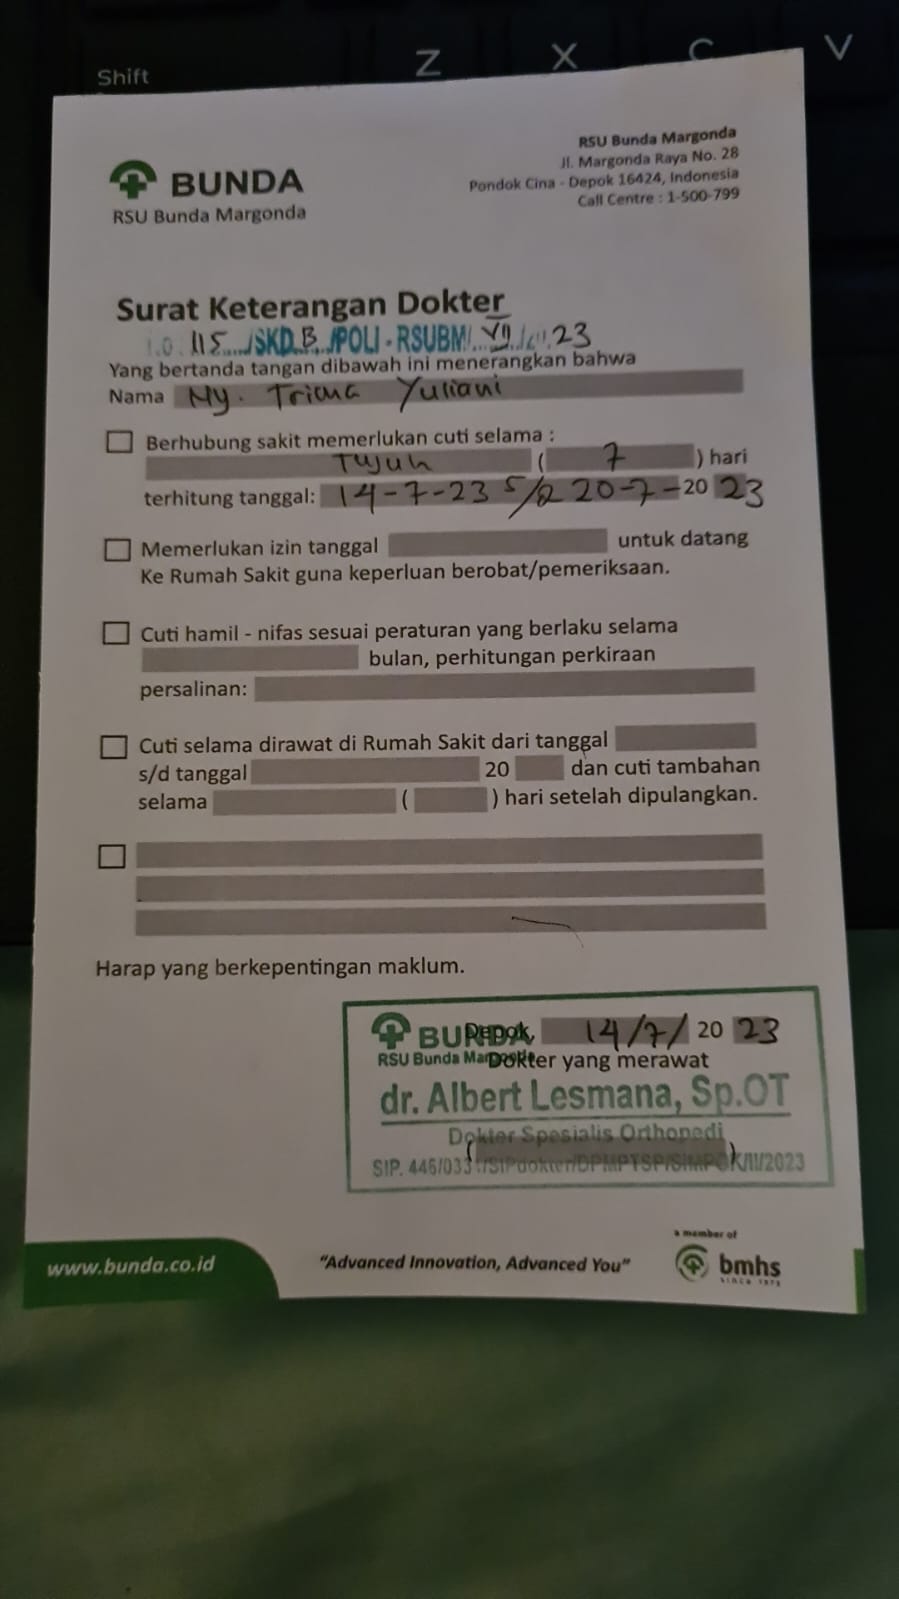 Shift Z X C V
BUNDA
RSU Bunda Margonda
RSU Bunda Margonda
Jl. Margonda Raya No. 28
Pondok Cina - Depok 16424, Indonesia
Call Centre : 1-500-799
Surat Keterangan Dokter
115 /SKD B /POLI - RSUBM/ VII / 23
Yang bertanda tangan dibawah ini menerangkan bahwa
Nama Ny. Triana Yuliani
Berhubung sakit memerlukan cuti selama :
Tujuh ( 7 ) hari
terhitung tanggal: 14-7-23 s/d 20-7-20 23
Memerlukan izin tanggal untuk datang
Ke Rumah Sakit guna keperluan berobat/pemeriksaan.
Cuti hamil - nifas sesuai peraturan yang berlaku selama
bulan, perhitungan perkiraan
persalinan:
Cuti selama dirawat di Rumah Sakit dari tanggal
s/d tanggal 20 dan cuti tambahan
selama ( ) hari setelah dipulangkan.
Harap yang berkepentingan maklum.
BUNDA
RSU Bunda Margonda
Depok, 14/7/ 20 23
Dokter yang merawat
dr. Albert Lesmana, Sp.OT
Dokter Spesialis Orthopedi
( )
www.bunda.co.id
"Advanced Innovation, Advanced You"
a member of
bmhs